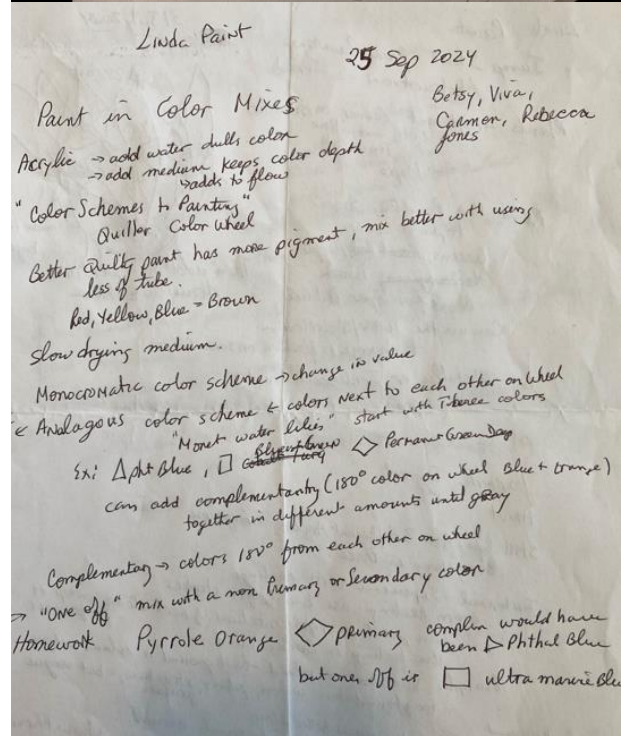 Linda Paint
25 Sep 2024
Betsy, Viva,
Carmen, Rebecca
Jones
Paint in Color Mixes
Acrylic → add water dulls color
→ add medium keeps color depth
→ adds to flow
"Color Schemes to Painting"
Quiller Color Wheel
Better Quilty paint has more pigment, mix better with using
less of tube.
Red, Yellow, Blue = Brown
Slow drying medium.
Monocromatic color scheme → change in value
Analagous color scheme ← colors next to each other on wheel
"Monet water lilies" start with colors
Ex: △ pht Blue, □ ◇ Permanent Green Deep
can add complementantry (180° color on wheel Blue + Orange)
together in different amounts until gray
Complementary → colors 180° from each other on wheel
→ "One off" mix with a non Primary or Secondary color
Homework Pyrrole Orange ◇ primary complem would have
been ▷ Phthal Blue
but one off is □ ultra marine Blu